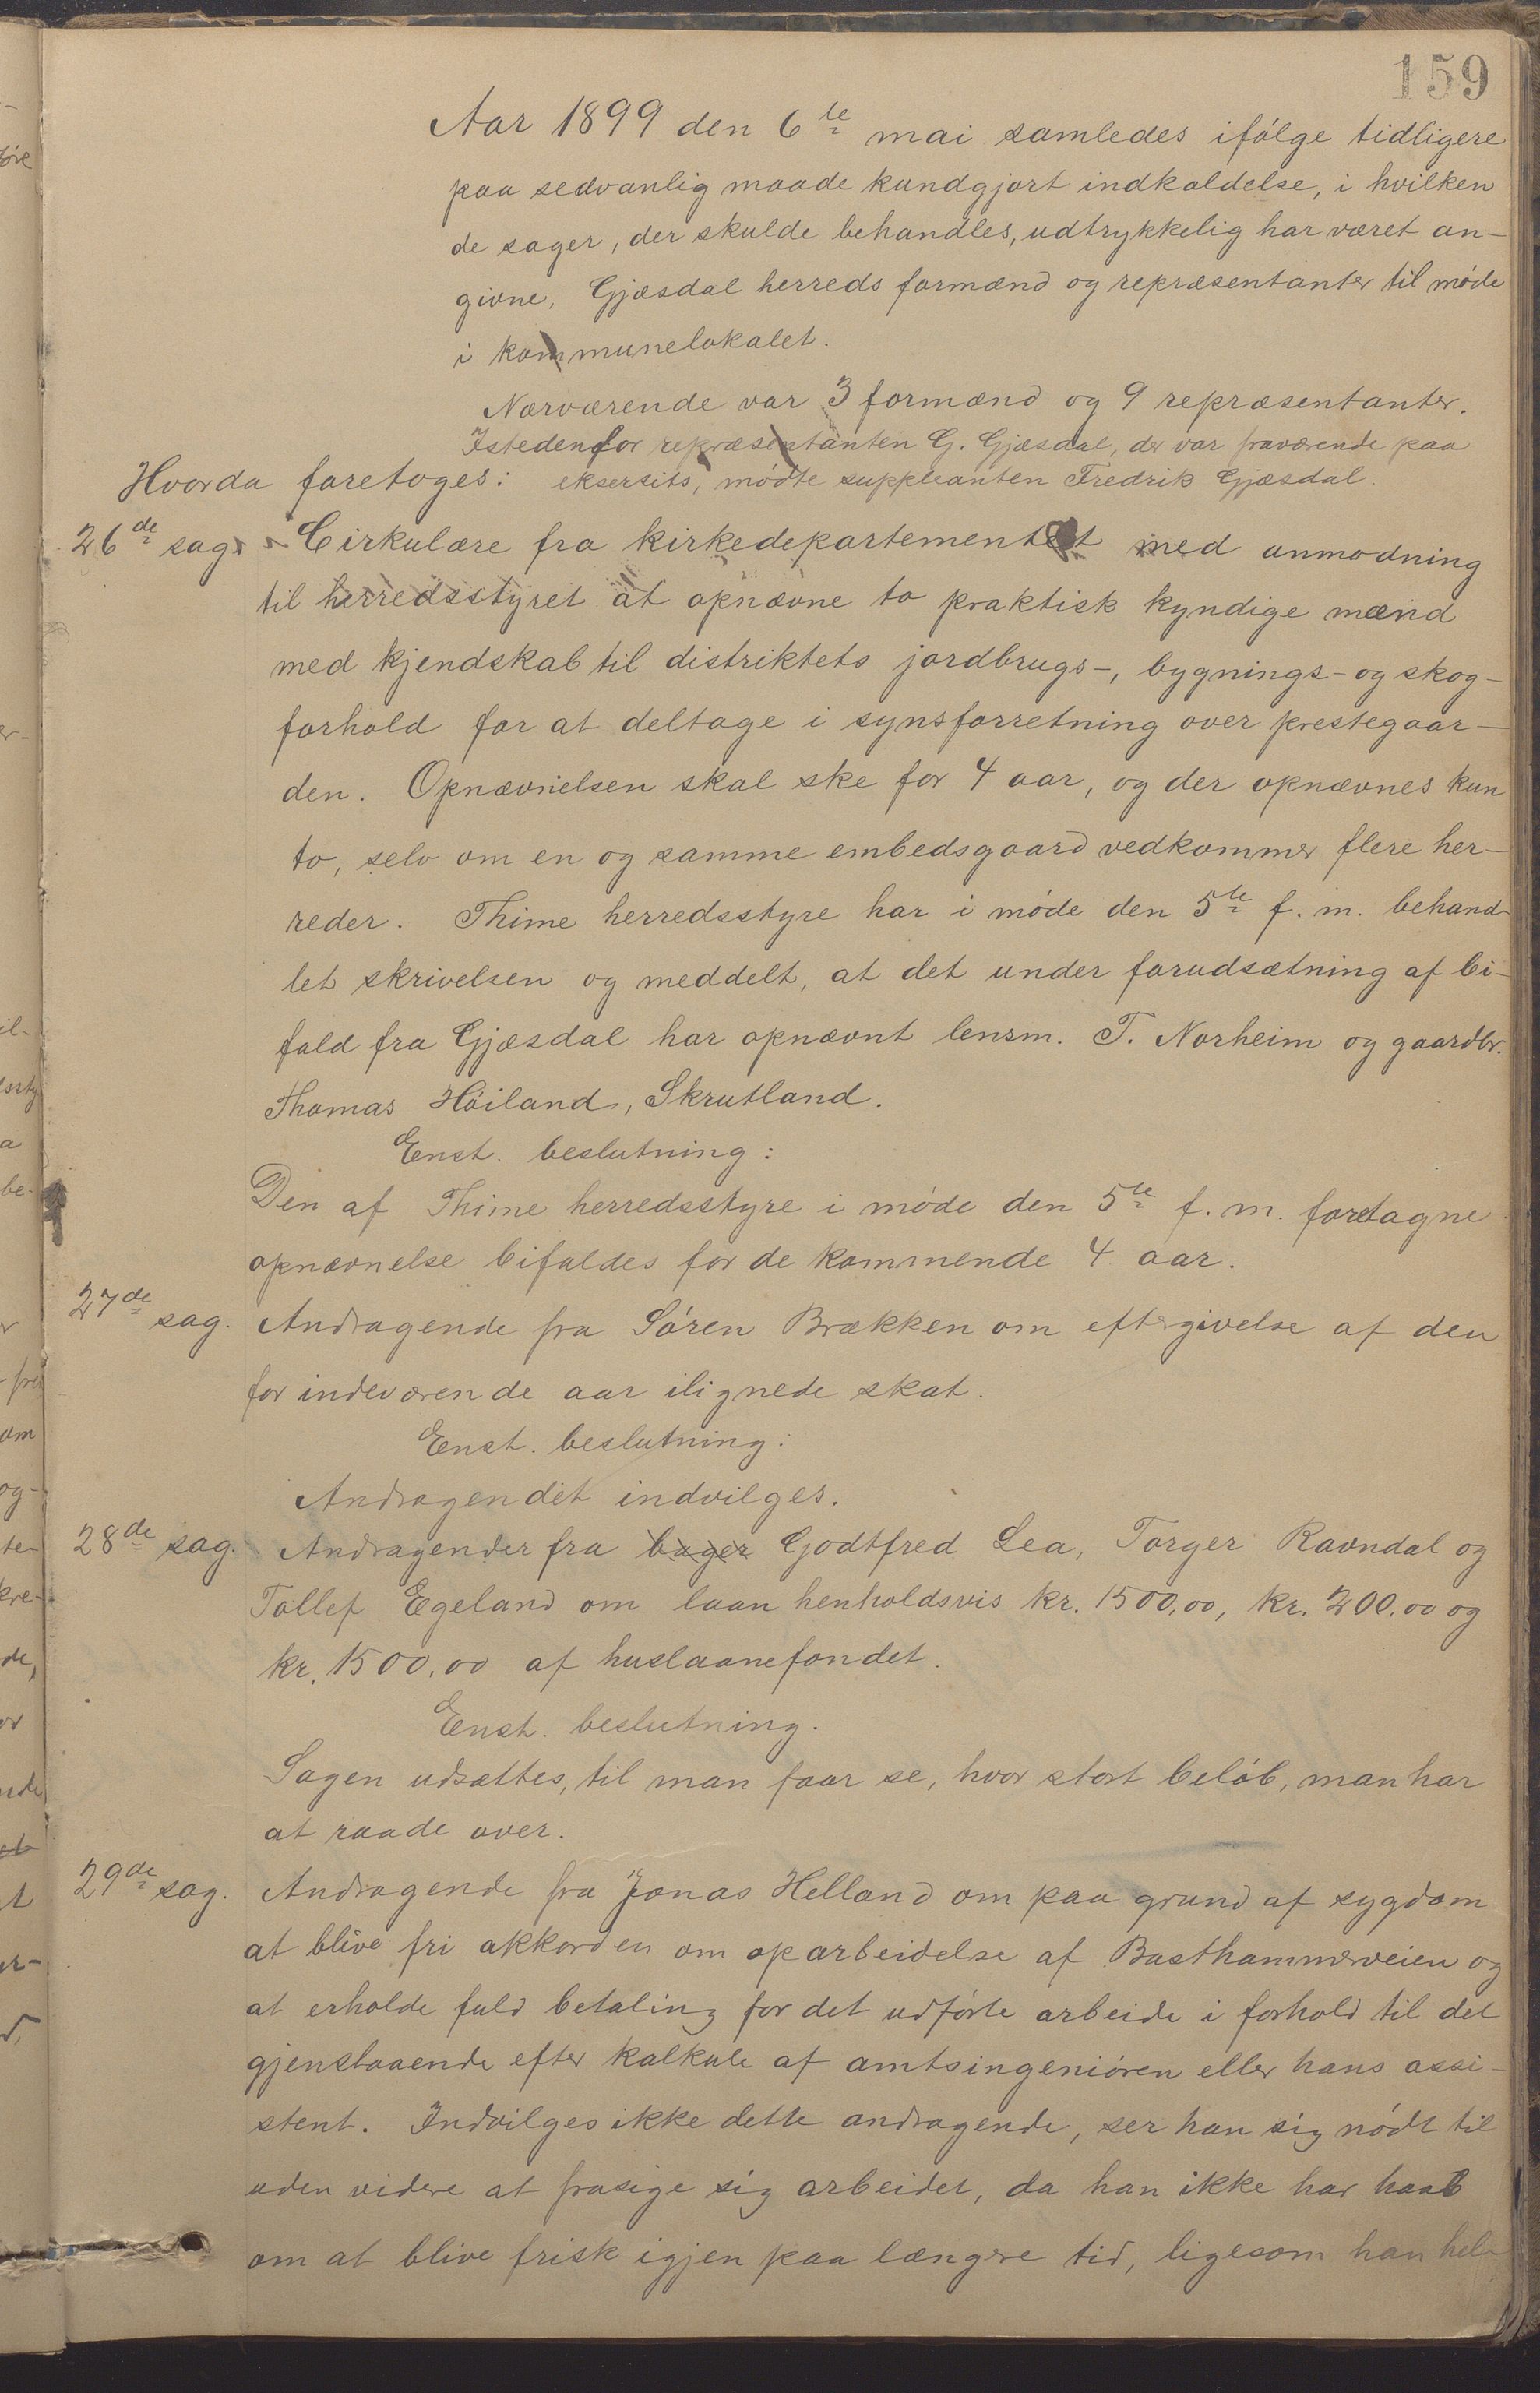 159
Aar 1899 den 6te mai samledes ifölge tidligere
paa sedvanlig maade kundgjort indkaldelse, i hvilken
de sager, der skulde behandles, udtrykkelig har været an-
givne, Gjæsdal herreds formænd og repræsentanter til möde
i kommunelokalet.
Nærværende var 3 formænd og 9 repræsentanter.
Istedenfor repræsentanten G. Gjæsdal, der var fraværende paa
Hvorda foretoges: eksersits, mödte suppleanten Fredrik Gjæsdal.
26de sag. Cirkulære fra kirkedepartementet med anmodning
til herredsstyret at opnævne to praktisk kyndige mænd
med kjendskab til distriktets jordbrugs-, bygnings- og skog-
forhold for at deltage i synsforretning over prestegaar-
den. Opnævnelsen skal ske for 4 aar, og der opnævnes kun
to, selv om en og samme embedsgaard vedkommer flere her-
reder. Thime herredsstyre har i möde den 5te f. m. behand-
let skrivelsen og meddelt, at det under forudsætning af bi-
fald fra Gjæsdal har opnævnt lensm. T. Norheim og gaardbr.
Thomas Höiland, Skrutland.
Enst. beslutning:
Den af Thime herredsstyre i möde den 5te f. m. foretagne
opnævnelse bifaldes for de kommende 4 aar.
27de sag. Andragende fra Sören Brækken om eftergivelse af den
for indeværende aar ilignede skat.
Enst. beslutning:
Andragendet indvilges.
28de sag. Andragender fra bager Godtfred Lea, Torger Ravndal og
Tollef Egeland om laan henholdsvis kr. 1500,00, kr. 200,00 og
kr. 1500,00 af huslaanefondet.
Enst. beslutning.
Sagen udsættes, til man faar se, hvor stort belöb, man har
at raade over.
29de sag. Andragende fra Jonas Helland om paa grund af sygdom
at blive fri akkorden om oparbeidelse af Basthammerveien og
at erholde fuld betaling for det udförte arbeide i forhold til det
gjenstaaende efter kalkule af amtsingeniören eller hans assi-
stent. Indvilges ikke dette andragende, ser han sig nödt til
uden videre at frasige sig arbeidet, da han ikke har haab
om at blive frisk igjen paa længere tid, ligesom han hel-